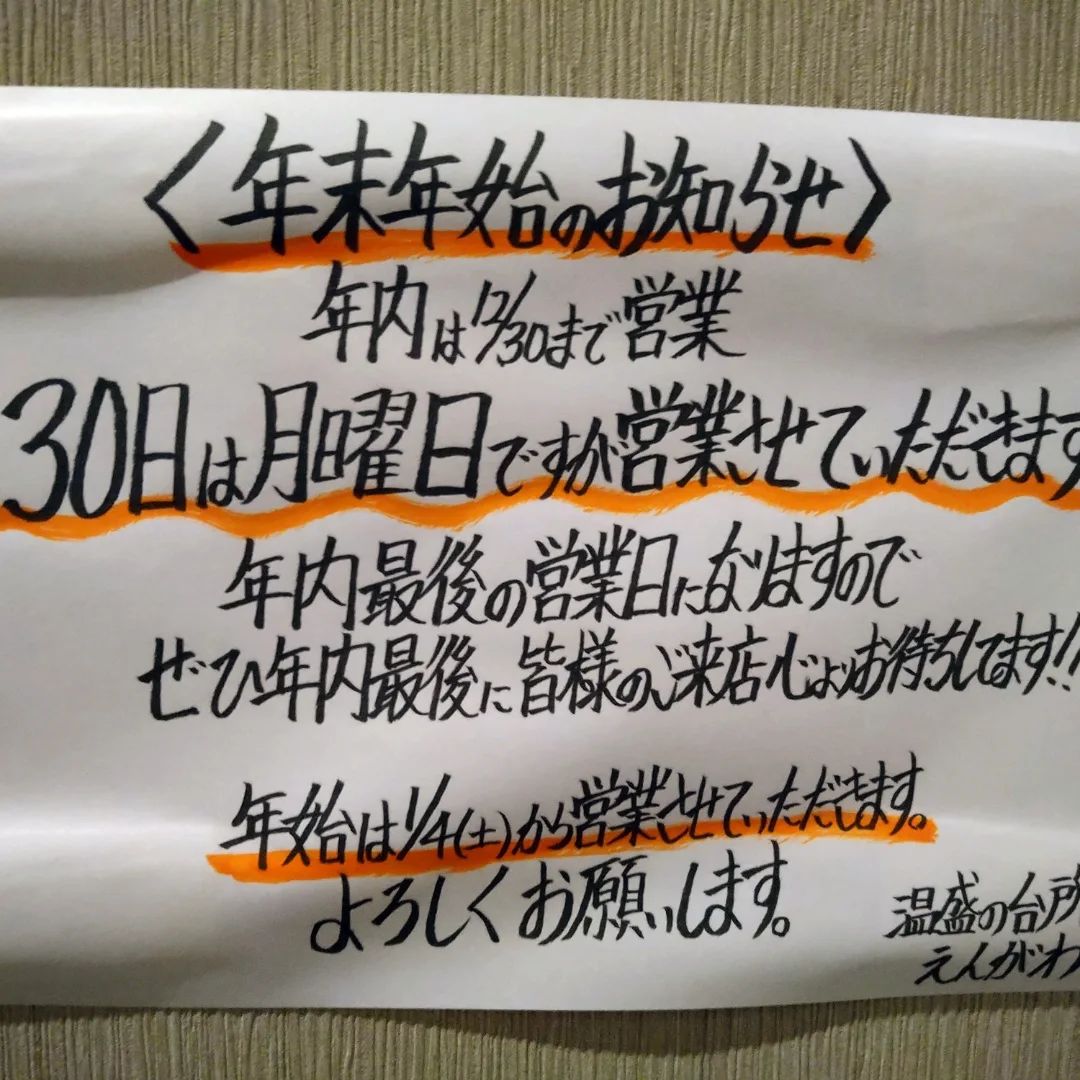 〈年末年始のお知らせ〉
年内は12/30まで営業
30日は月曜日ですが営業させていただきます
年内最後の営業日になりますので
ぜひ年内最後に皆様のご来店心よりお待ちしてます!!
年始は1/4(土)から営業させていただきます。
よろしくお願いします。
温盛の台所
えんがわ